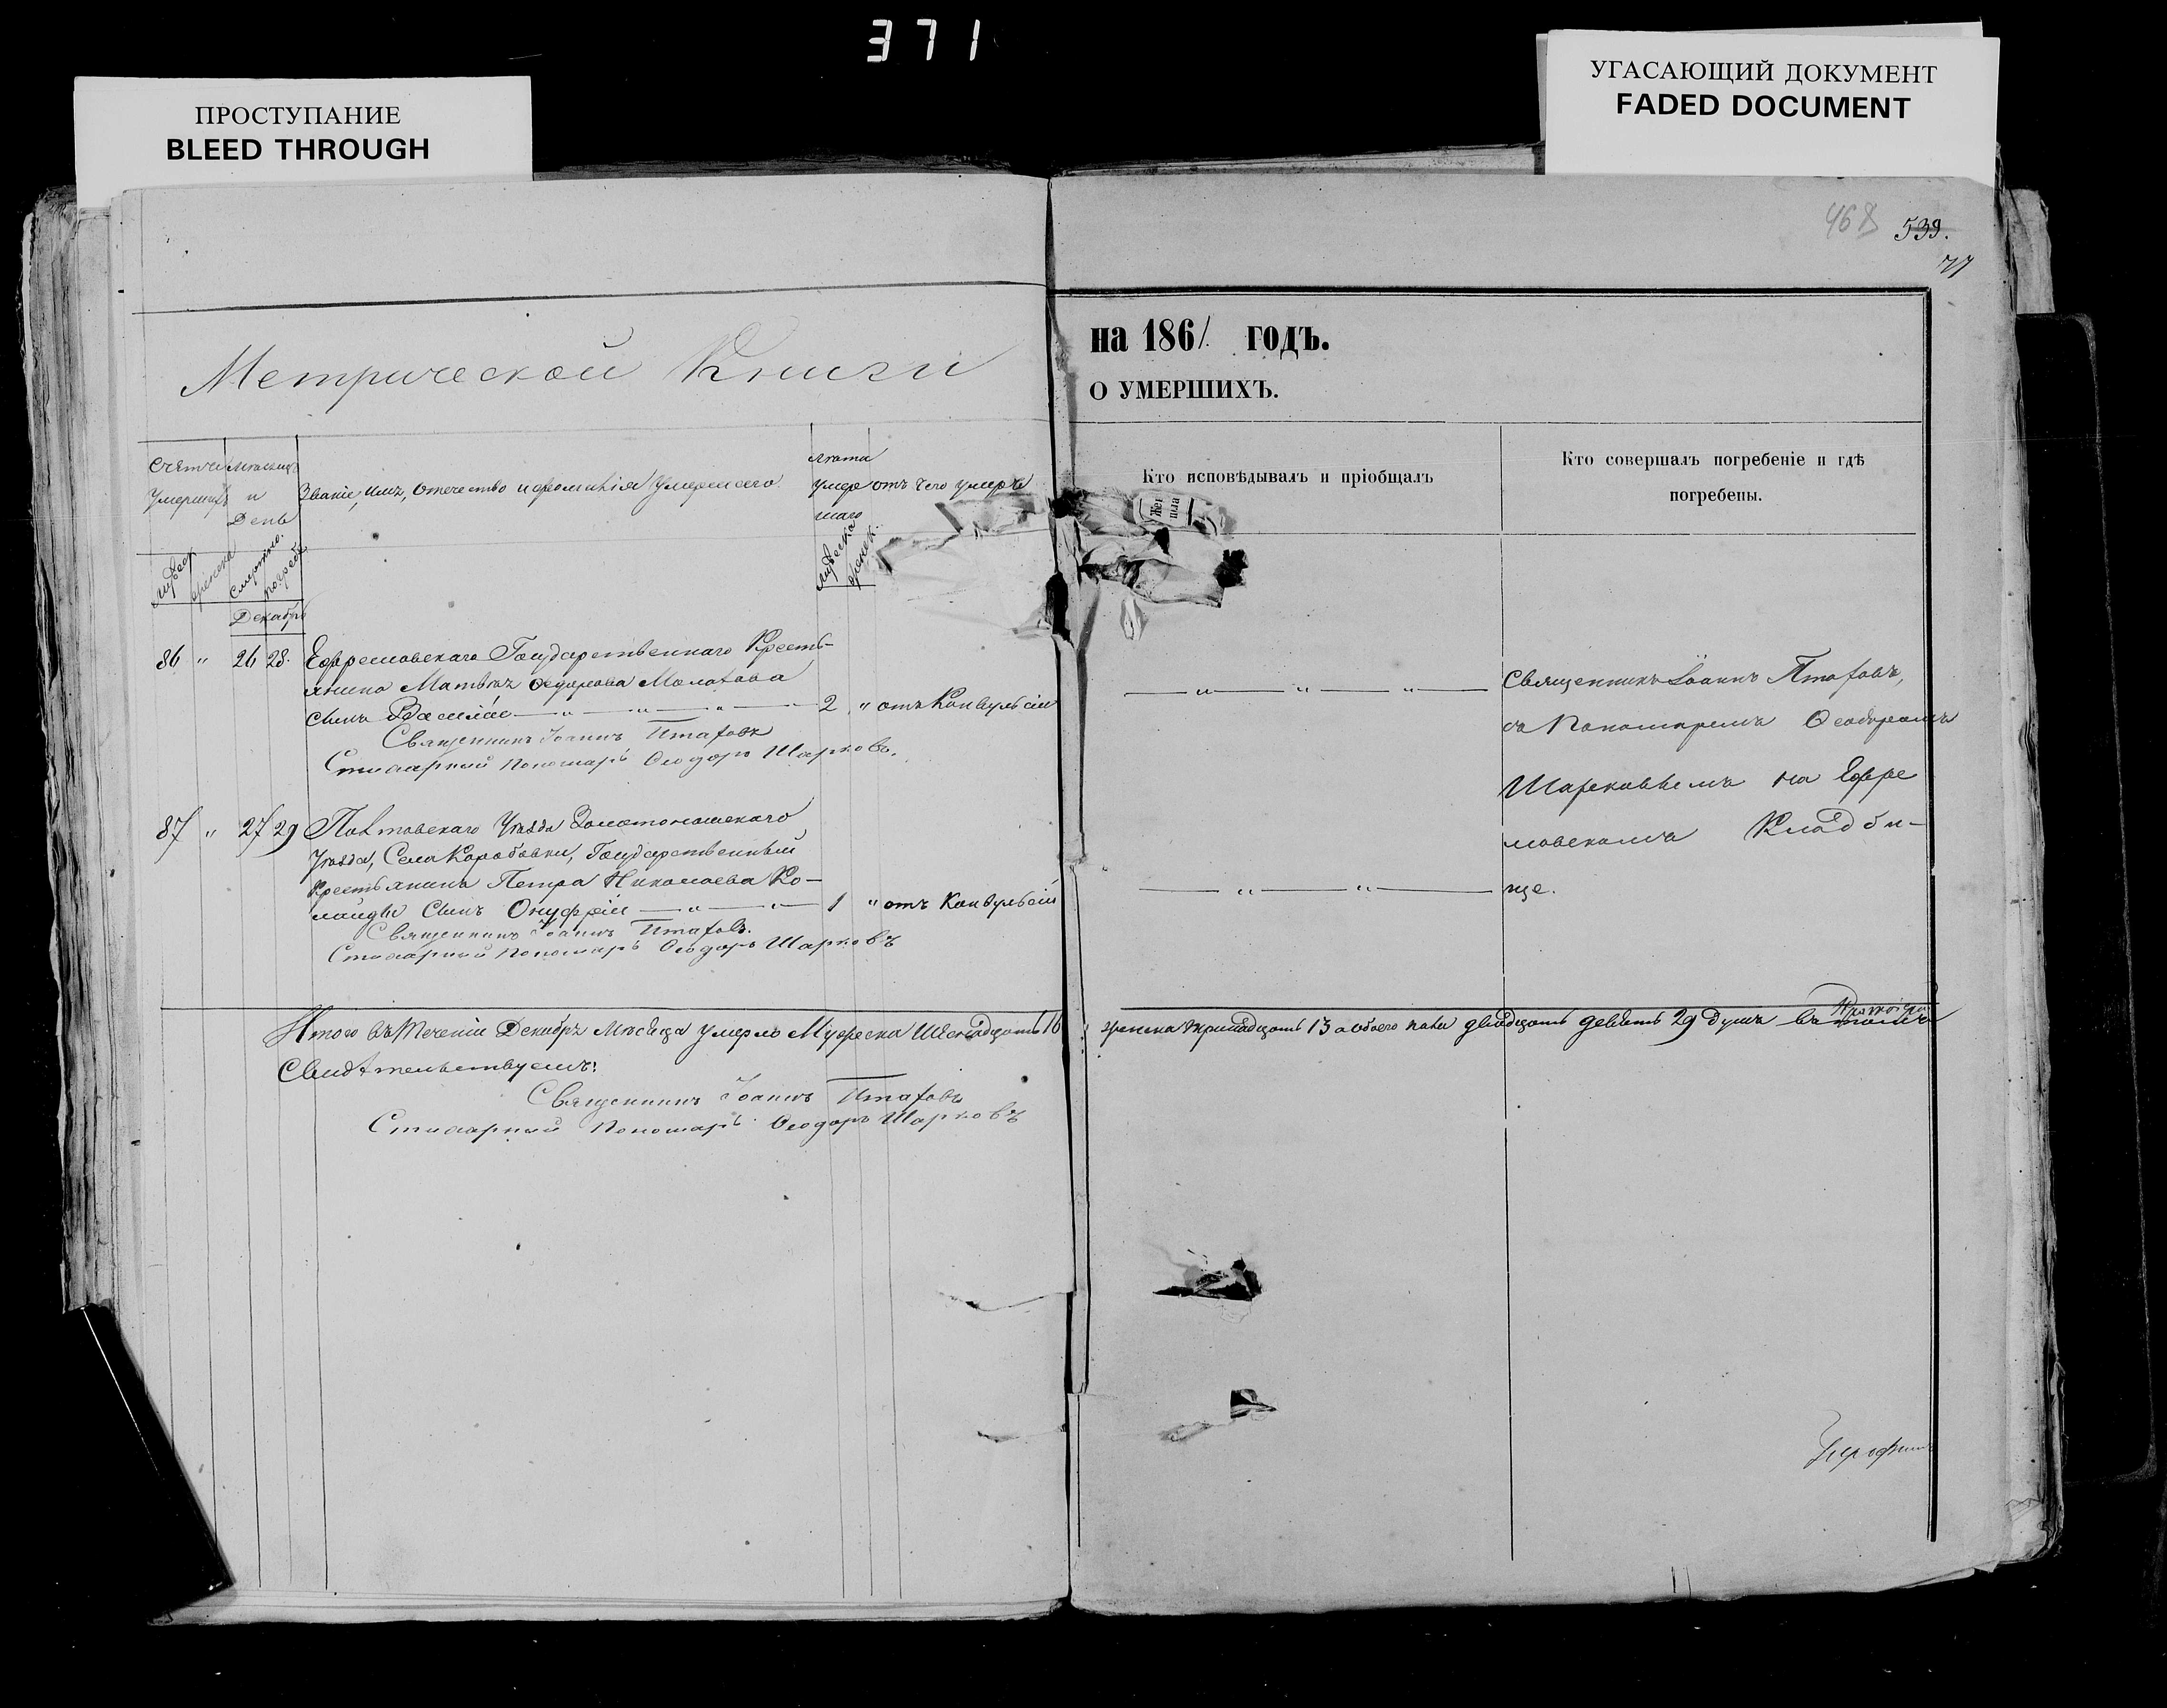 371
ПРОСТУПАНИЕ
BLEED THROUGH
УГАСАЮЩИЙ ДОКУМЕНТ
FADED DOCUMENT
468 539.
77
Метрической Книги
на 1861 годъ.
О УМЕРШИХЪ.
Счетъ Умершихъ
Мѣсяцъ и День
Званіе, имя, отечество и фамилія Умершаго
Лѣта умершаго
отъ чего умеръ
Кто исповѣдывалъ и пріобщалъ
Кто совершалъ погребеніе и гдѣ
погребены.
мужеск
женска
смерти
погреб.
мужеска
женск.
Декабрь
86 " 26 28. Ефремовскаго Государственнаго Кресть-
янина Матвѣя Ѳедорова Молотова
сынъ Василій — " — " — " — 2 " отъ Конвульсіи
Священникъ Іоаннъ Птаховъ
Стихарный Пономарь Ѳеодоръ Шарковъ.
— " — " — " —
Священникъ Іоаннъ Птаховъ,
съ Пономаремъ Ѳеодоромъ
Шарковымъ на Ефре
мовскомъ Кладби-
ще.
87 " 27 29 Полтавскаго Уѣзда Золотоношскаго
Уѣзда, Села Коробовки, Государственный
Крестьянина Петра Николаева Ко-
ломійды Сынъ Онуфрій — " — " — 1 " отъ Конвульсіи
Священникъ Іоаннъ Птаховъ.
Стихарный Пономарь Ѳеодоръ Шарковъ
— " — " —
Итого въ теченіи Декабрѣ Мѣсяца умерло Мужеска Шеснадцать 16
женска тринадцать 13 а обоего пола двадцать девять 29 душъ въ
Свидѣтельствуемъ:
Священникъ Іоаннъ Птаховъ
Стихарный Пономарь Ѳеодоръ Шарковъ